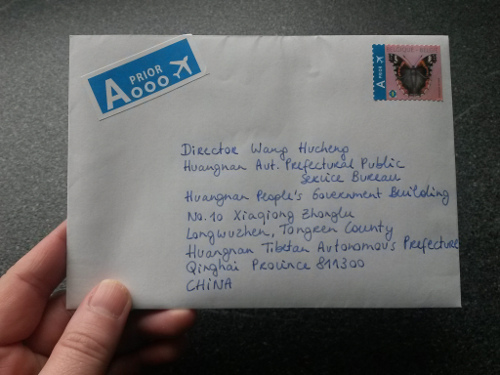 A PRIOR
A PRIOR
Director Wang Hucheng
Huangnan Aut. Prefectural Public
Service Bureau
Huangnan People's Government Building
No. 10 Xiaqiong Zhonglu
Longwuzhen, Tongren County
Huangnan Tibetan Autonomous Prefecture
Qinghai Province 811300
CHINA